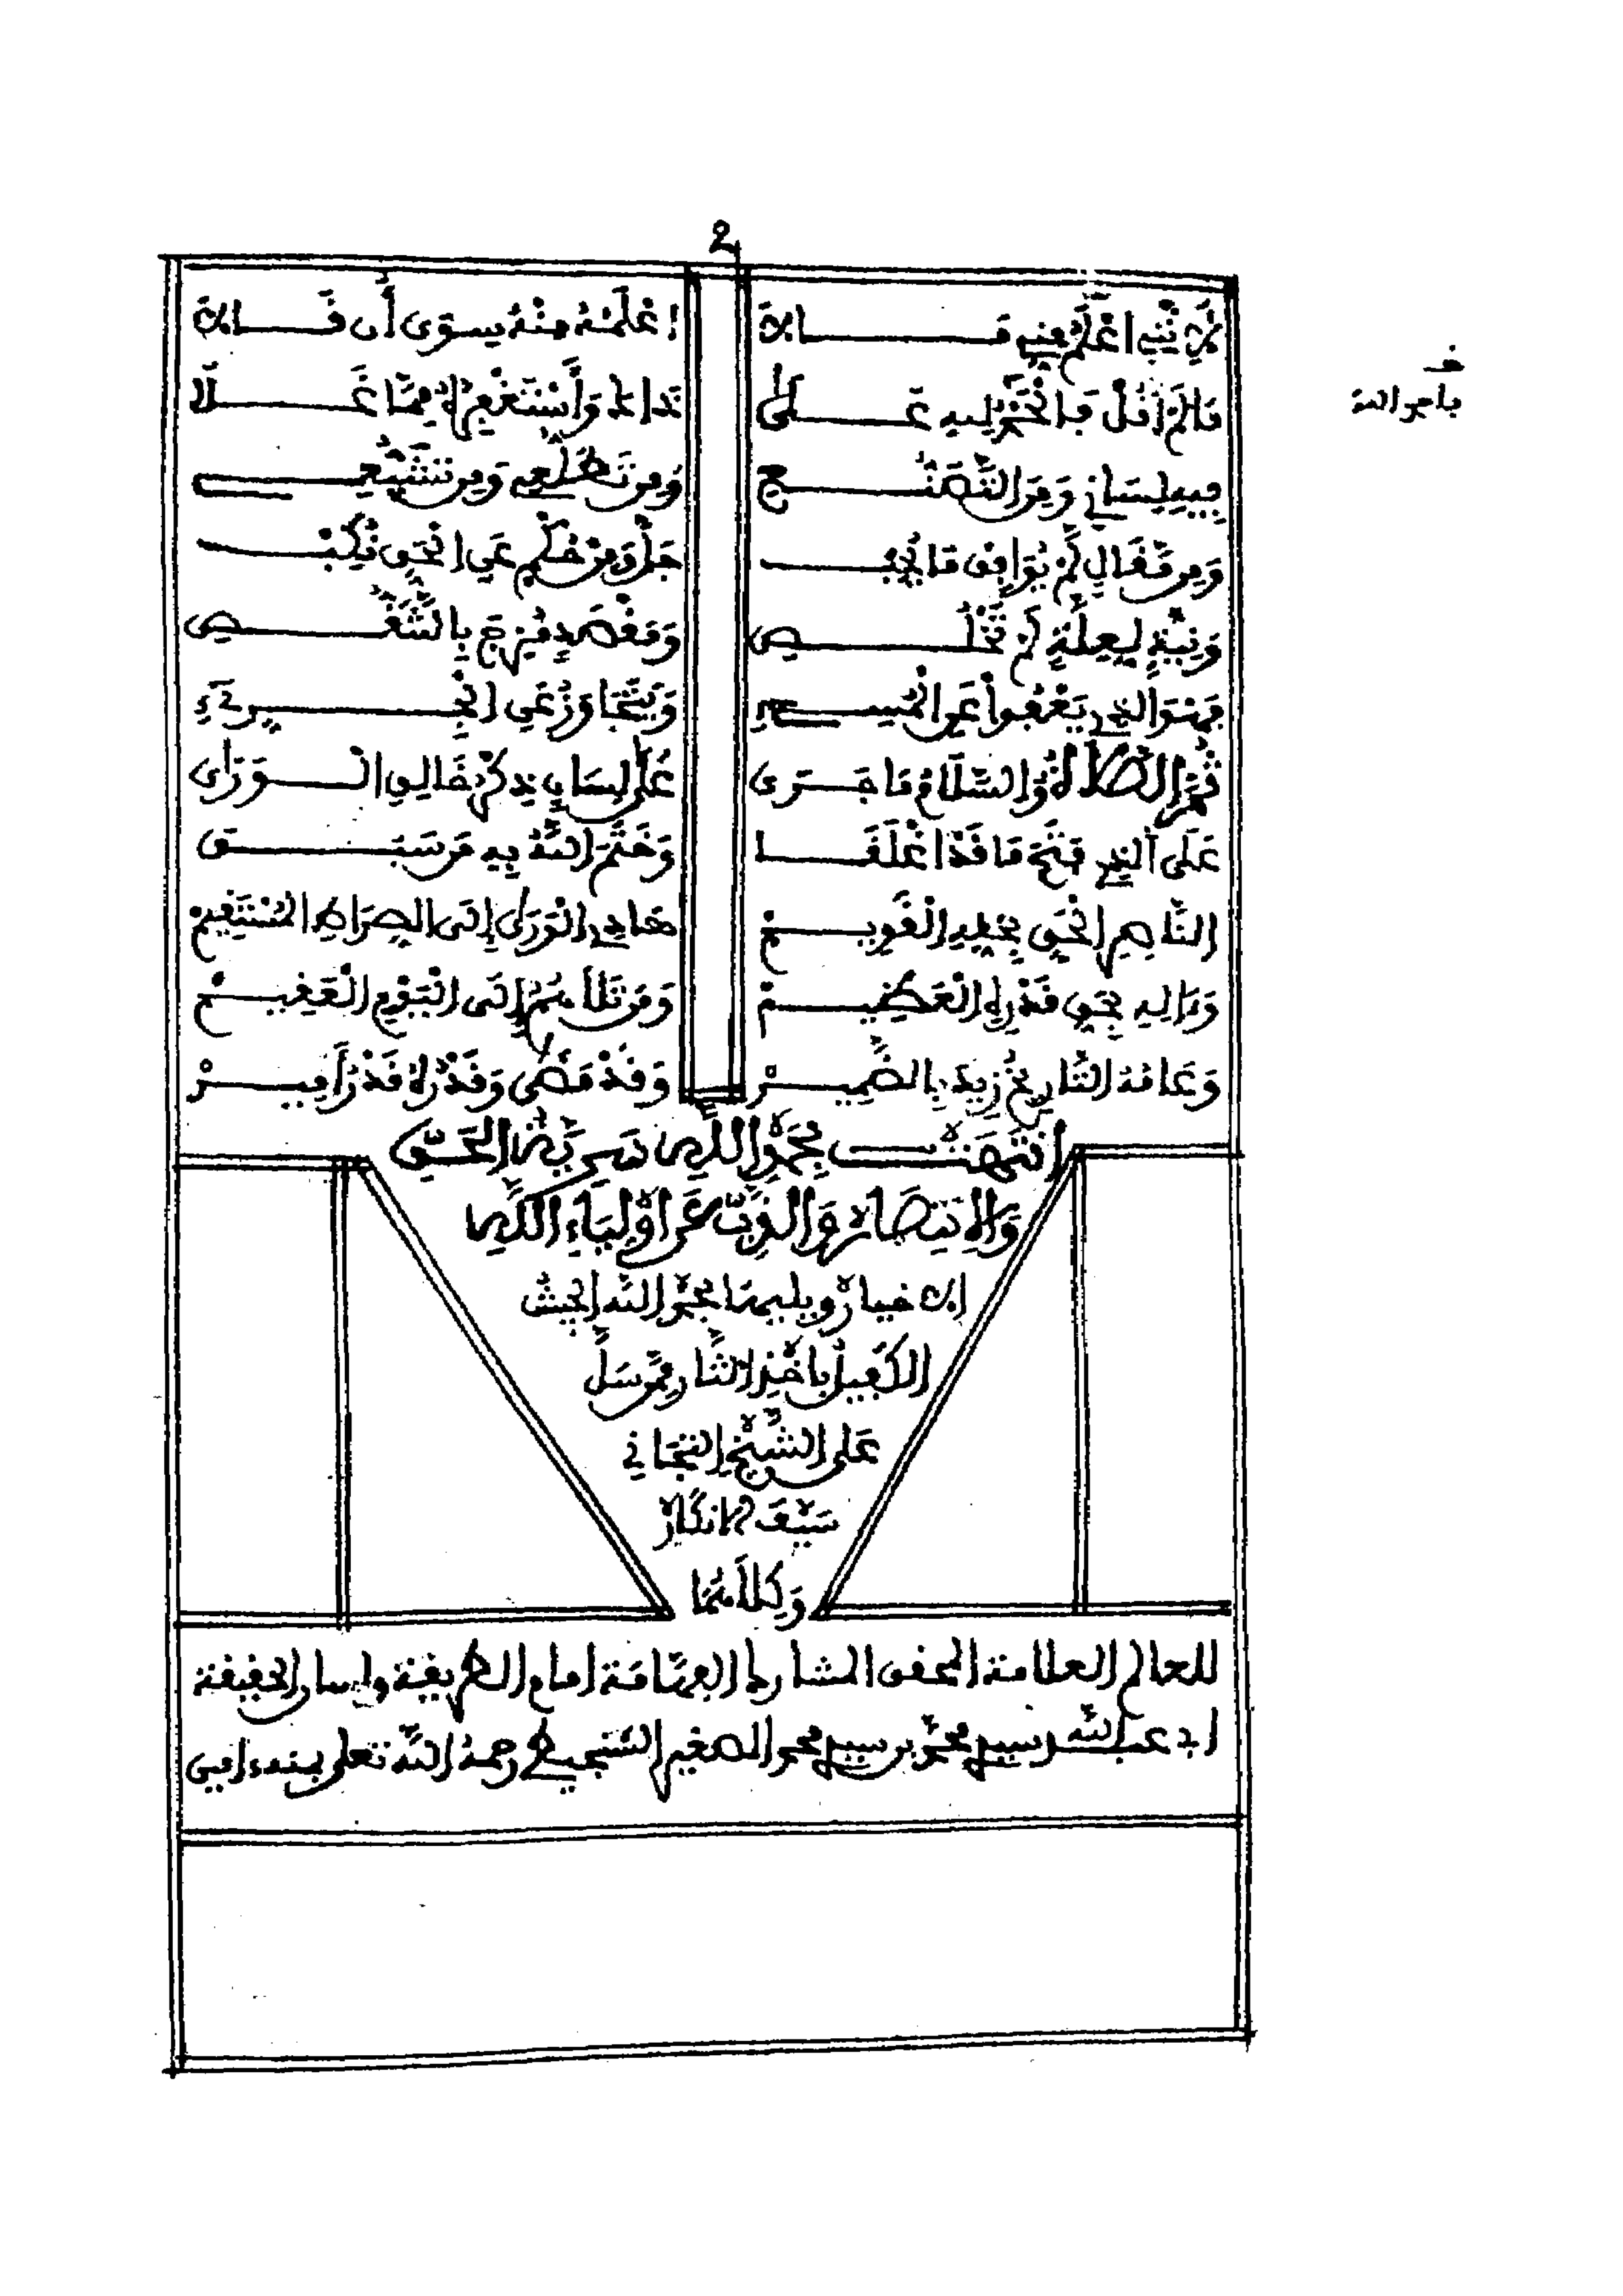 2
اعلمه منه سوى أن قاله
ما لم أقل فالحمد لله على
نداءه وأستغفره مما غلا
فيه لساني ومن التصنع
ومن تطلعي ومن تشيع
ومن مقال لم يوافق ما يجب
جل ومن حكم عن الحق نكب
ونية لعلة لم تخلص
ومقصد مزج بالتنغص
فهو الذي يعفوا عن المسيء
ويتجاوز عن الجريء
ثم الصلاة والسلام ما جرى
على لسان ذكره فالى الورى
على الذي فتح ما قد اغلقا
وختم الله به من سبق
الناصر الحق بحقه القويم
هادي الورى إلى الصراط المستقيم
وءاله بحق قدره العظيم
ومن تلاهم إلى اليوم العقيم
وعامه التاريخ زيد بالضمير
وقد مضى وقدره قدر أمير
انتهت بحمد الله سرية الحق
والانتصار والذب عن اولياء الله
الاخيار ويليها بحمد الله الجيش
الكفيل باخذ الثار ممن سل
على الشيخ التجاني
سيف الانكار
وكلاهما
للعالم العلامة المحقق المشارك الفهامة امام الطريقة ولسان الحقيقة
ابي عبد الله سيدي محمد بن سيدي محمد الصغير الشنجيطي رحمه الله تعلى بمنه ءامين